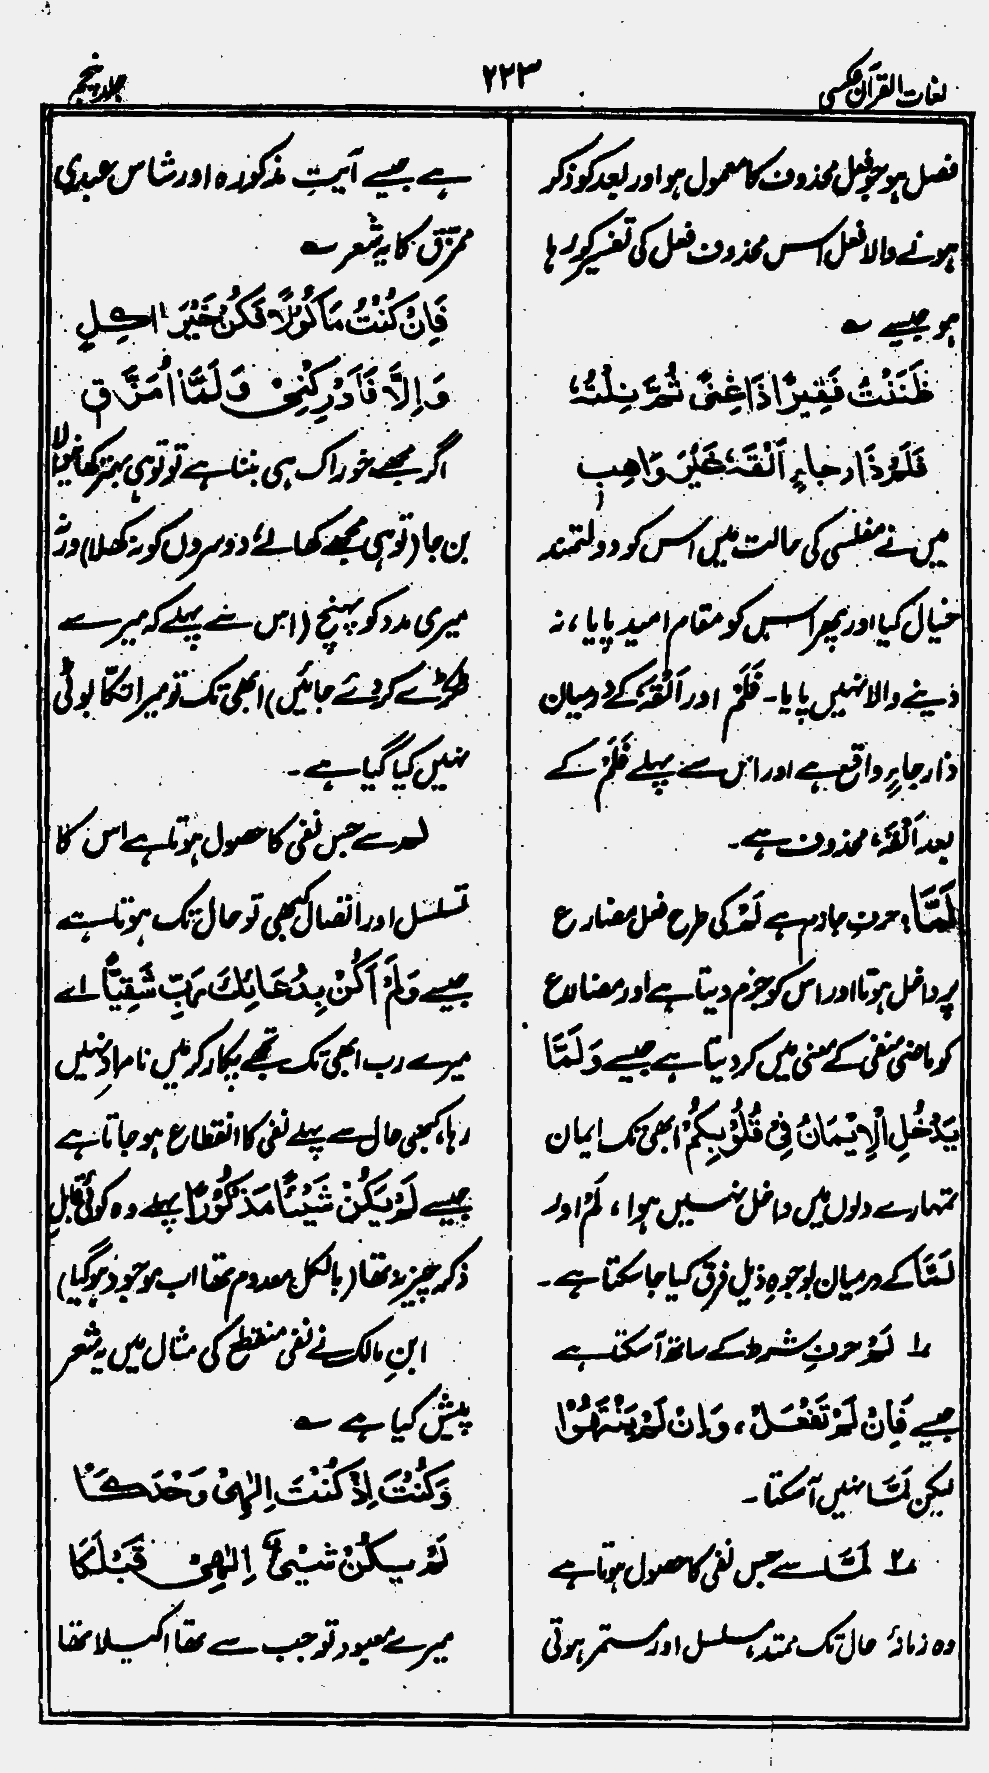 لغات القرآن عکسی
۲۲۳
جلد پنجم
فصل ہو جو فعل محذوف کا معمول ہو اور بعد کو ذکر
ہونے والا فعل اس محذوف فعل کی تفسیر کر رہا
ہو جیسے ؎
ظَنَنْتُ فَقِیْرًا ذَا غِنًی ثُمَّ نِلْتُہٗ
فَلَمْ ذَا رجاءٍ اَلْقَہٗ غَیْرَ وَاھِبٖ
میں نے مفلسی کی حالت میں اس کو دولتمند
خیال کیا اور پھر اس کو مقام امید پایا، نہ
دینے والا نہیں پایا۔ فَلَمْ اور اَلْقَہٗ کے درمیان
ذا رجاءٍ واقع ہے اور اس سے پہلے فَلَمْ کے
بعد اَلْقَہٗ، محذوف ہے۔
لَمَّا؛ حرف جازم ہے لَمْ کی طرح فعل مضارع
پر داخل ہوتا اور اس کو جزم دیتا ہے اور مضارع
کو ماضی منفی کے معنی میں کر دیتا ہے جیسے وَلَمَّا
یَدْخُلِ الْاِیْمَانُ فِیْ قُلُوْبِکُمْ ابھی تک ایمان
تمہارے دلوں میں داخل نہیں ہوا، لَمْ اور
لَمَّا کے درمیان بوجوہِ ذیل فرق کیا جا سکتا ہے۔
۱؎ لَمْ حرفِ شرط کے ساتھ آ سکتا ہے
جیسے فَاِنْ لَمْ تَفْعَلْ، وَاِنْ لَمْ یَنْتَھُوْا
لیکن لَمَّا نہیں آ سکتا۔
۲؎ لَمَّا سے جس نفی کا حصول ہوتا ہے
وہ زمانۂ حال تک ممتد، مسلسل اور مستمر ہوتی
ہے جیسے آیتِ مذکورہ اور شاس عبدی
ممزّق کا یہ شعر ؎
فَاِنْ کُنْتُ مَاکُوْلًا فَکُنْ خَیْرَ اٰکِلٍ
وَاِلَّا فَاَدْرِکْنِیْ وَلَمَّا اُمَزَّقٖ
اگر مجھے خوراک ہی بننا ہے تو تو ہی بہتر کھانیوالا
بن جا (تو ہی مجھے کھا لے، دوسروں کو نہ کھلا) ورنہ
میری مدد کو پہنچ (اس سے پہلے کہ میرے
ٹکڑے کر دئے جائیں) ابھی تک تو میرا تکّا بوٹی
نہیں کیا گیا ہے۔
لم سے جس نفی کا حصول ہوتا ہے اس کا
تسلسل اور اتصال کبھی تو حال تک ہوتا ہے
جیسے وَلَمْ اَکُنْ بِدُعَائِکَ رَبِّ شَقِیًّا اے
میرے رب ابھی تک تجھے پکار کر میں نامراد نہیں
رہا، کبھی حال سے پہلے نفی کا انقطاع ہو جاتا ہے
جیسے لَمْ یَکُنْ شَیْئًا مَذْکُوْرًا پہلے وہ کوئی قابل
ذکر چیز نہ تھا (بالکل معدوم تھا اب موجود ہوگیا)
ابنِ مالک نے نفی منقطع کی مثال میں یہ شعر
پیش کیا ہے ؎
وَکُنْتَ اِذْ کُنْتَ اِلٰھِیْ وَحْدَکَا
لَمْ یَکُنْ شَیْئٌ اِلٰھِیْ قَبْلَکَا
میرے معبود تو جب سے تھا اکیلا تھا